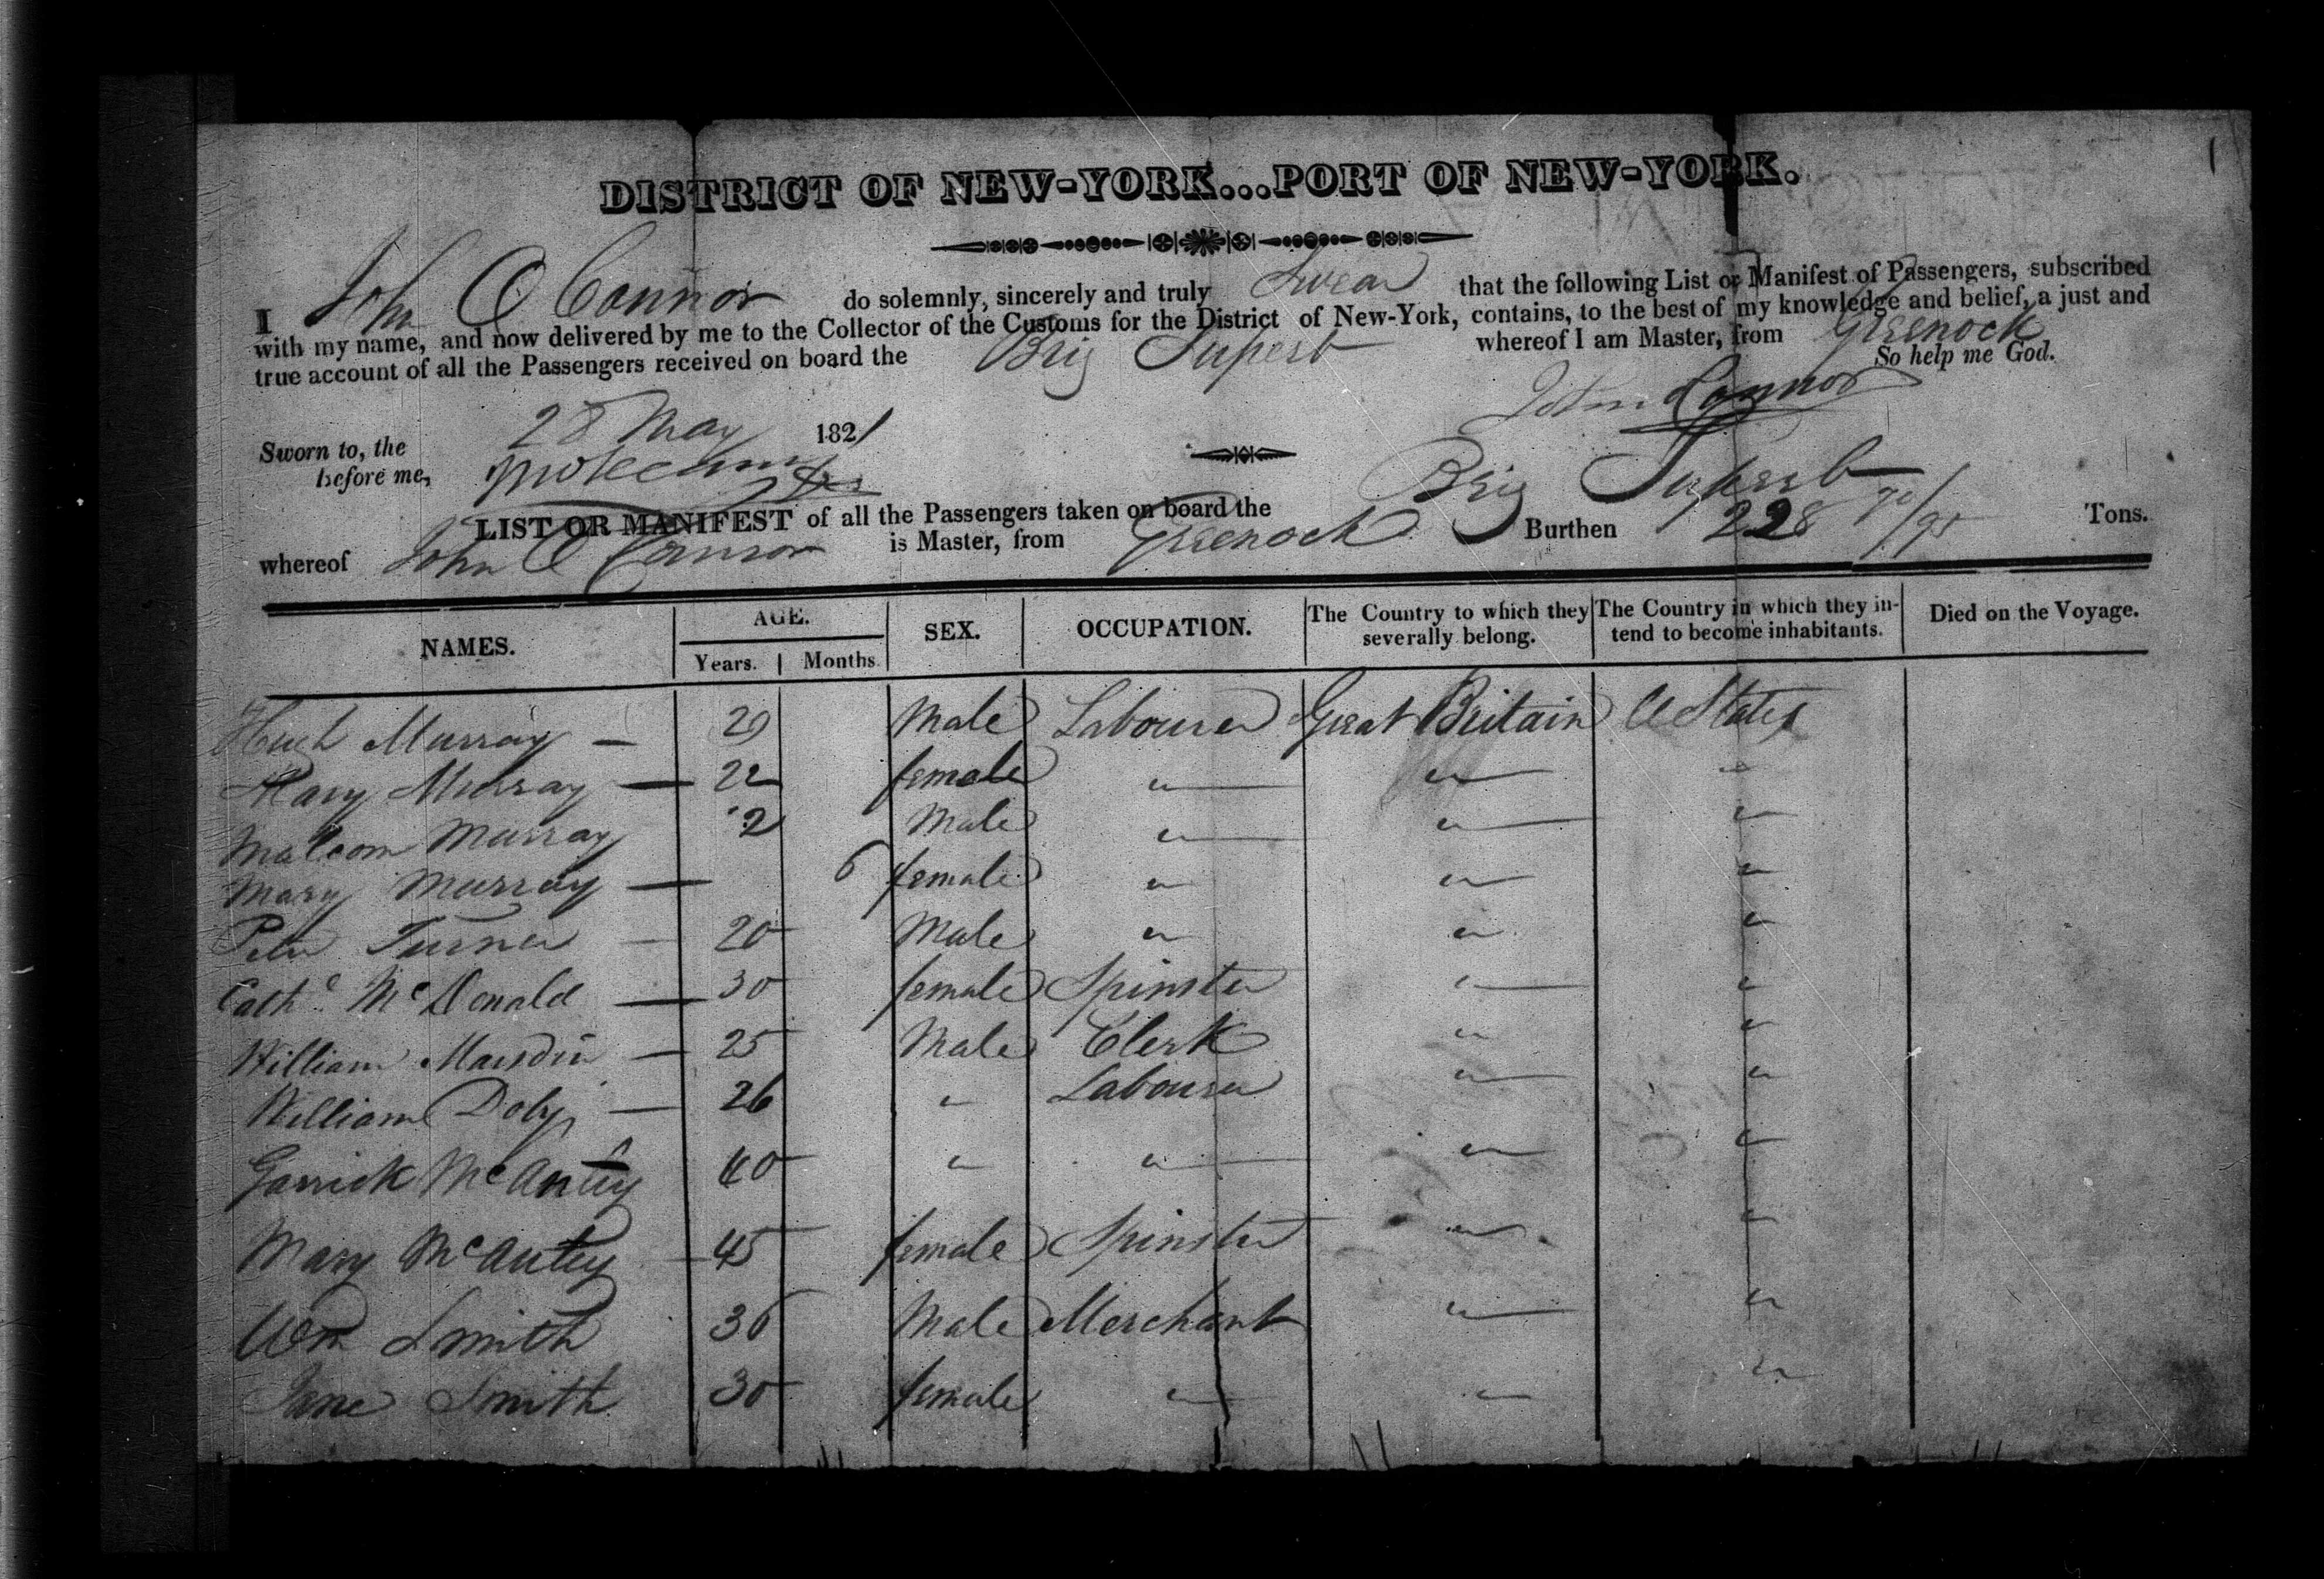 DISTRICT OF NEW-YORK...PORT OF NEW-YORK.
I John O Connor do solemnly, sincerely and truly Swear that the following List or Manifest of Passengers, subscribed
with my name, and now delivered by me to the Collector of the Customs for the District of New-York, contains, to the best of my knowledge and belief, a just and
true account of all the Passengers received on board the Brig Superb whereof I am Master, from Greenock
So help me God.
John OConnor
Sworn to, the 28 May 1821
before me,
LIST OR MANIFEST of all the Passengers taken on board the Brig Superb
whereof John O Connor is Master, from Greenock Burthen 228 90/95 Tons.
NAMES. AGE. SEX. OCCUPATION. The Country to which they severally belong. The Country in which they intend to become inhabitants. Died on the Voyage.
Years. Months.
Hugh Murray — 29 Male Labourer Great Britain U States
Mary Murray — 22 female " " "
Malcom Murray 2 Male " " "
Mary Murray — 6 female " " "
Peter Turner — 20 Male " " "
Cathe McDonald — 30 female Spinster " "
William — 25 Male Clerk " "
William Doby — 26 " Labourer " "
Garrick McAntey 40 " " " "
Mary McAutey — 45 female Spinster " "
Wm Smith 36 Male Merchant " "
Jane Smith 30 female " " "